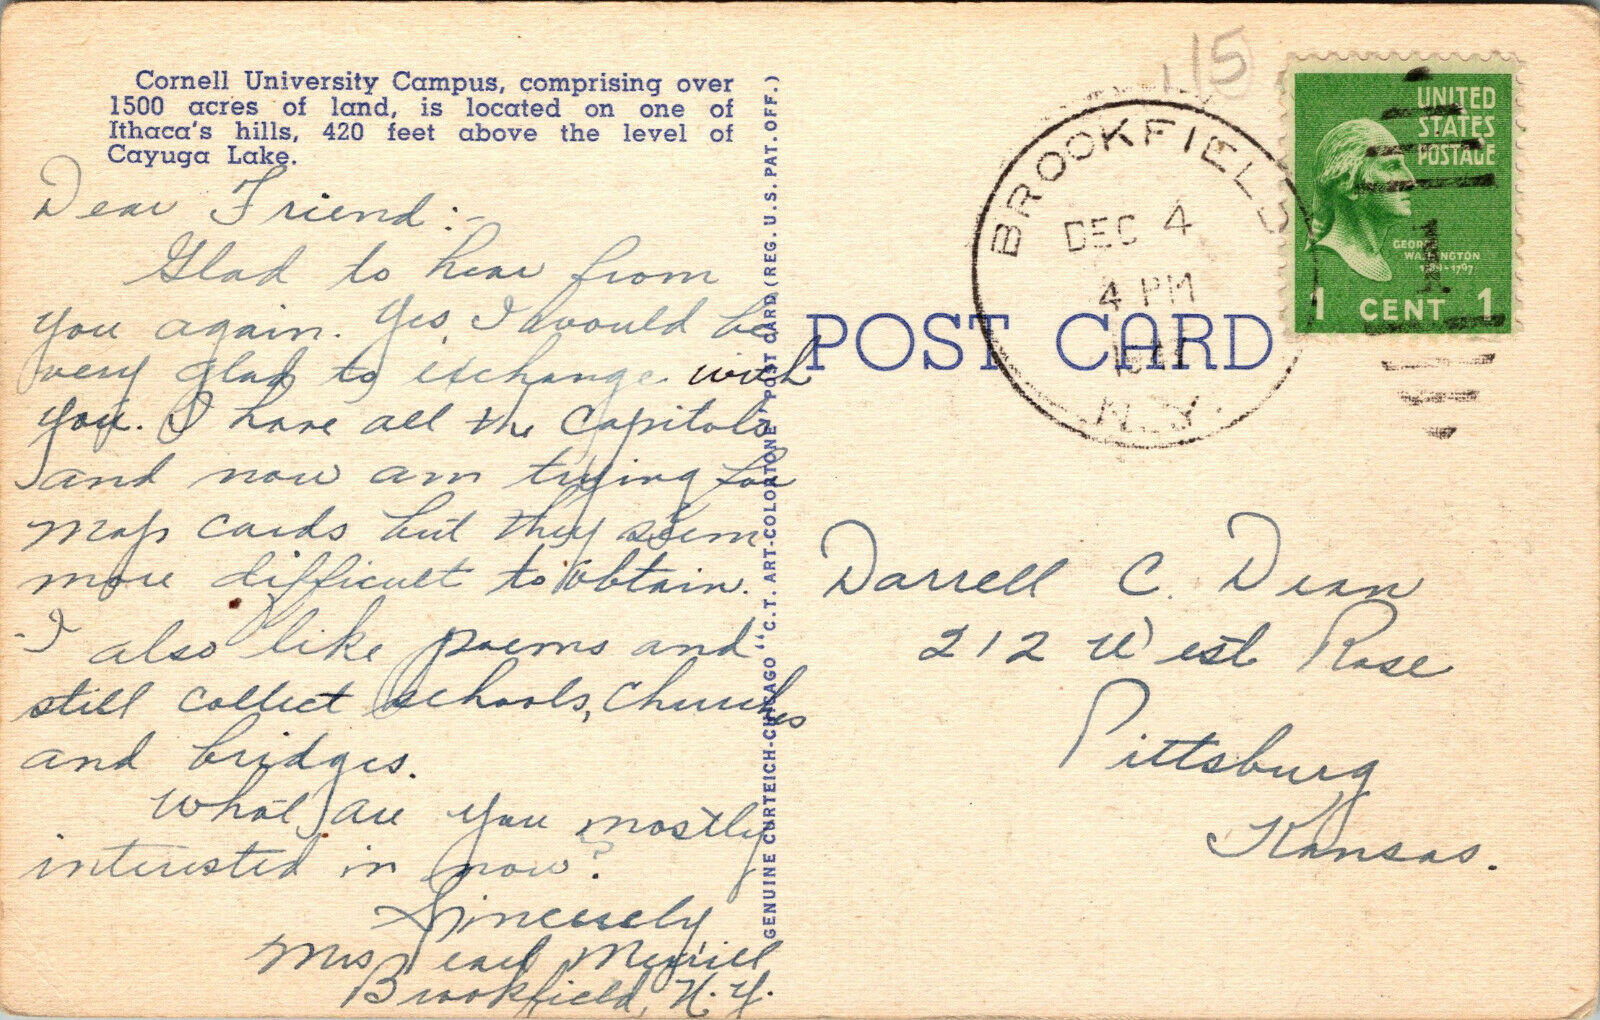 Cornell University Campus, comprising over
1500 acres of land, is located on one of
Ithaca's hills, 420 feet above the level of
Cayuga Lake.
Dear Friend:-
Glad to hear from
you again. Yes I would be
very glad to exchange with
you. I have all the Capitols
and now am trying for
map cards but they seem
more difficult to obtain.
I also like poems and
still collect schools, Churches
and bridges.
What are you mostly
interested in now?
Sincerely
Mrs Merrill
Brookfield, N.Y.
GENUINE CURTEICH-CHICAGO "C.T. ART-COLORTONE" POST CARD (REG. U.S. PAT. OFF.)
15
BROOKFIELD
DEC 4
4 PM
N.Y.
UNITED
STATES
POSTAGE
GEORGE
WASHINGTON
1 CENT 1
POST CARD
Darrell C. Dean
212 West Rose
Pittsburg
Kansas.